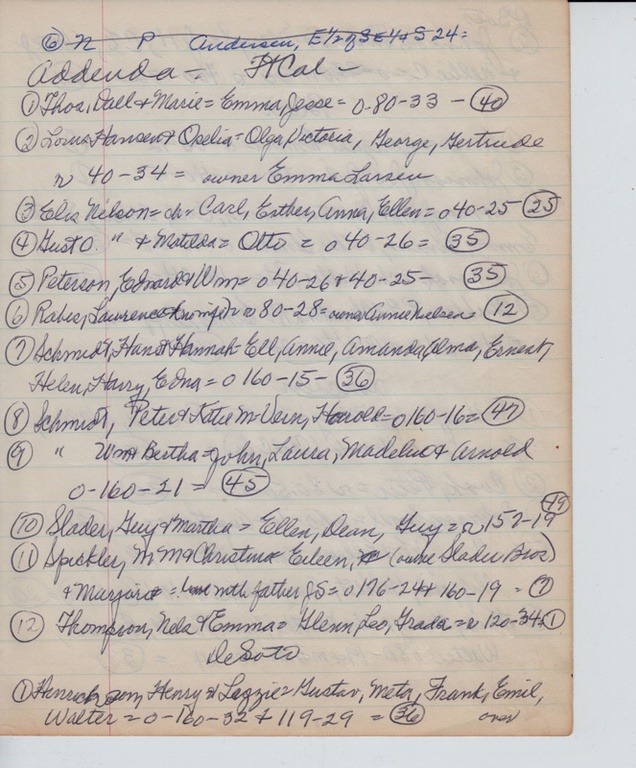 ⑥ N P Andersen, E½ of SE4 of S 24 =
Addenda = Ft Cal —
① Thos, Dall & Marie = Emma, Jesse = 0-80-33 — ㊵
② Hansen & Opelia = Olga, Victoria, George, Gertrude
r 40-34 = owner Emma Larsen
③ Elis Nelson = ch = Carl, Esther, Anna, Ellen = o 40-25 ㉕
④ Gust O. " & Matilda = Otto = o 40-26 = ㉟
⑤ Peterson, Edward & Wm = o 40-26 & 40-25 — ㉟
⑥ Rabes, Lawrence & = r 80-28 = owner Annie Nielsen = ⑫
⑦ Schmidt, Hans & Hannah = Ell, Annie, Amanda, Alma, Ernest,
Helen, Harry, Edna = o 160-15 — ㊱
⑧ Schmidt, Peter & Katie = Vern, Harold = o 160-16 = ㊼
⑨ " Wm & Bertha = John, Laura, Madeline & Arnold
0-160-21 = ㊺
⑩ Slader, Guy & Martha = Ellen, Dean, Guy = r 157-19 ㊾
⑪ Spickler, W M & Christina = Eileen, (owne Slader Bros)
& Marjorie = live with father JS = o 176-24 & 160-19 = ⑦
⑫ Thompson, Nels & Emma = Glenn, Leo, Grada = r 120-34 = ①
DeSoto
① Henrichson, Henry & Lizzie = Gustav, Meta, Frank, Emil,
Walter = 0-160-32 & 119-29 = ㊱ over